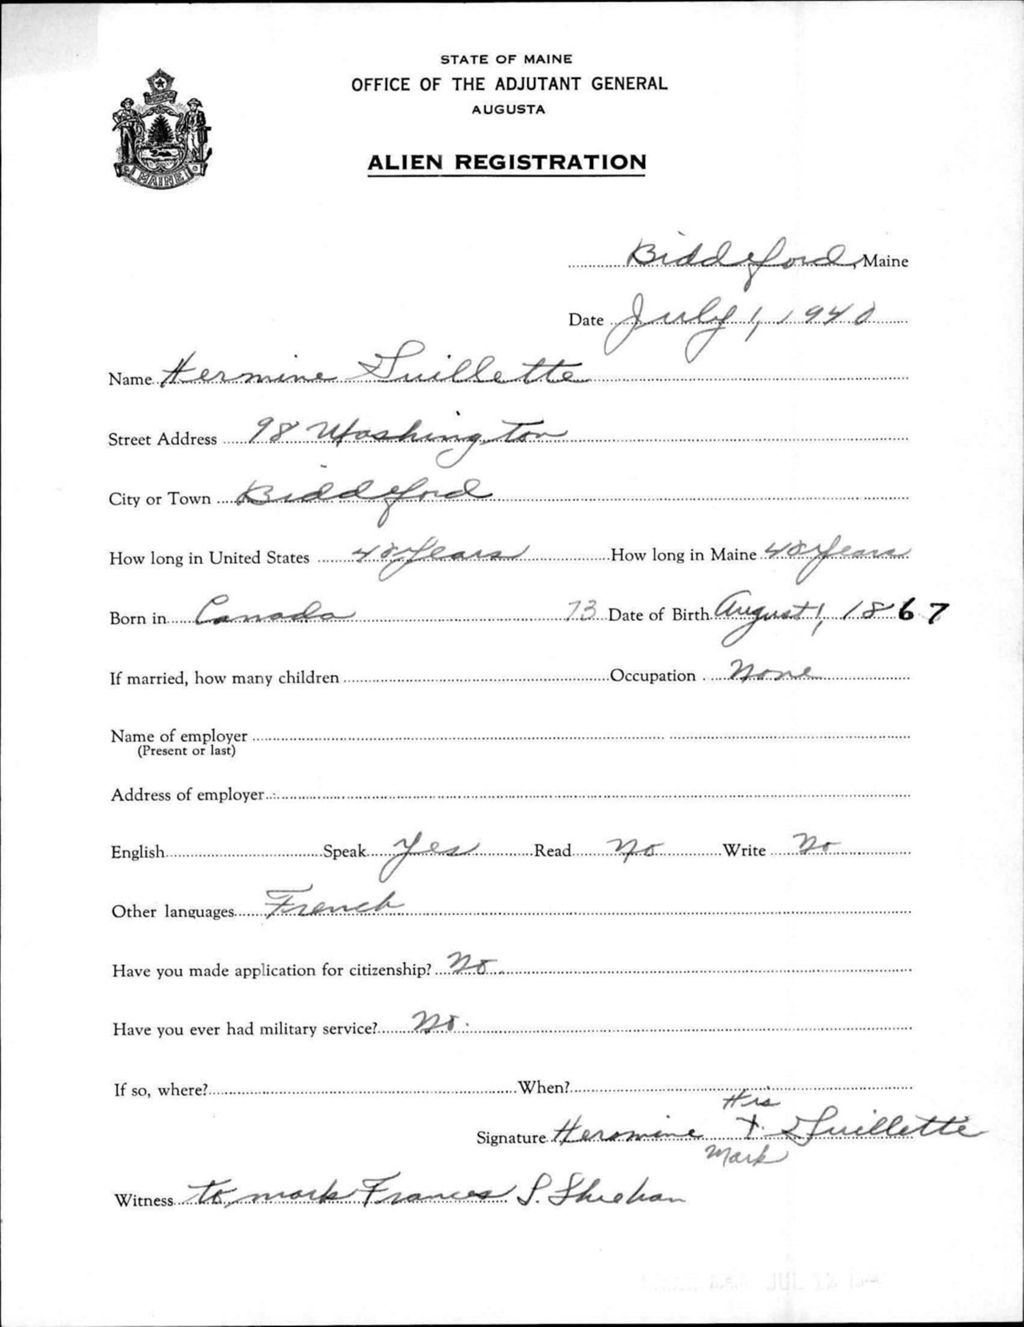 STATE OF MAINE
OFFICE OF THE ADJUTANT GENERAL
AUGUSTA
ALIEN REGISTRATION
MAINE
Biddeford, Maine
Date July 1, 1940
Name Hermine Guillette
Street Address 98 Washington
City or Town Biddeford
How long in United States 40 Years How long in Maine 40 Years
Born in Canada 73 Date of Birth August 1, 1867
If married, how many children Occupation None
Name of employer
(Present or last)
Address of employer
English Speak Yes Read No Write No
Other languages French
Have you made application for citizenship? No
Have you ever had military service? No.
If so, where? When?
His
Signature Heromine X Guillette
Mark
Witness to mark Frances S. Sheehan